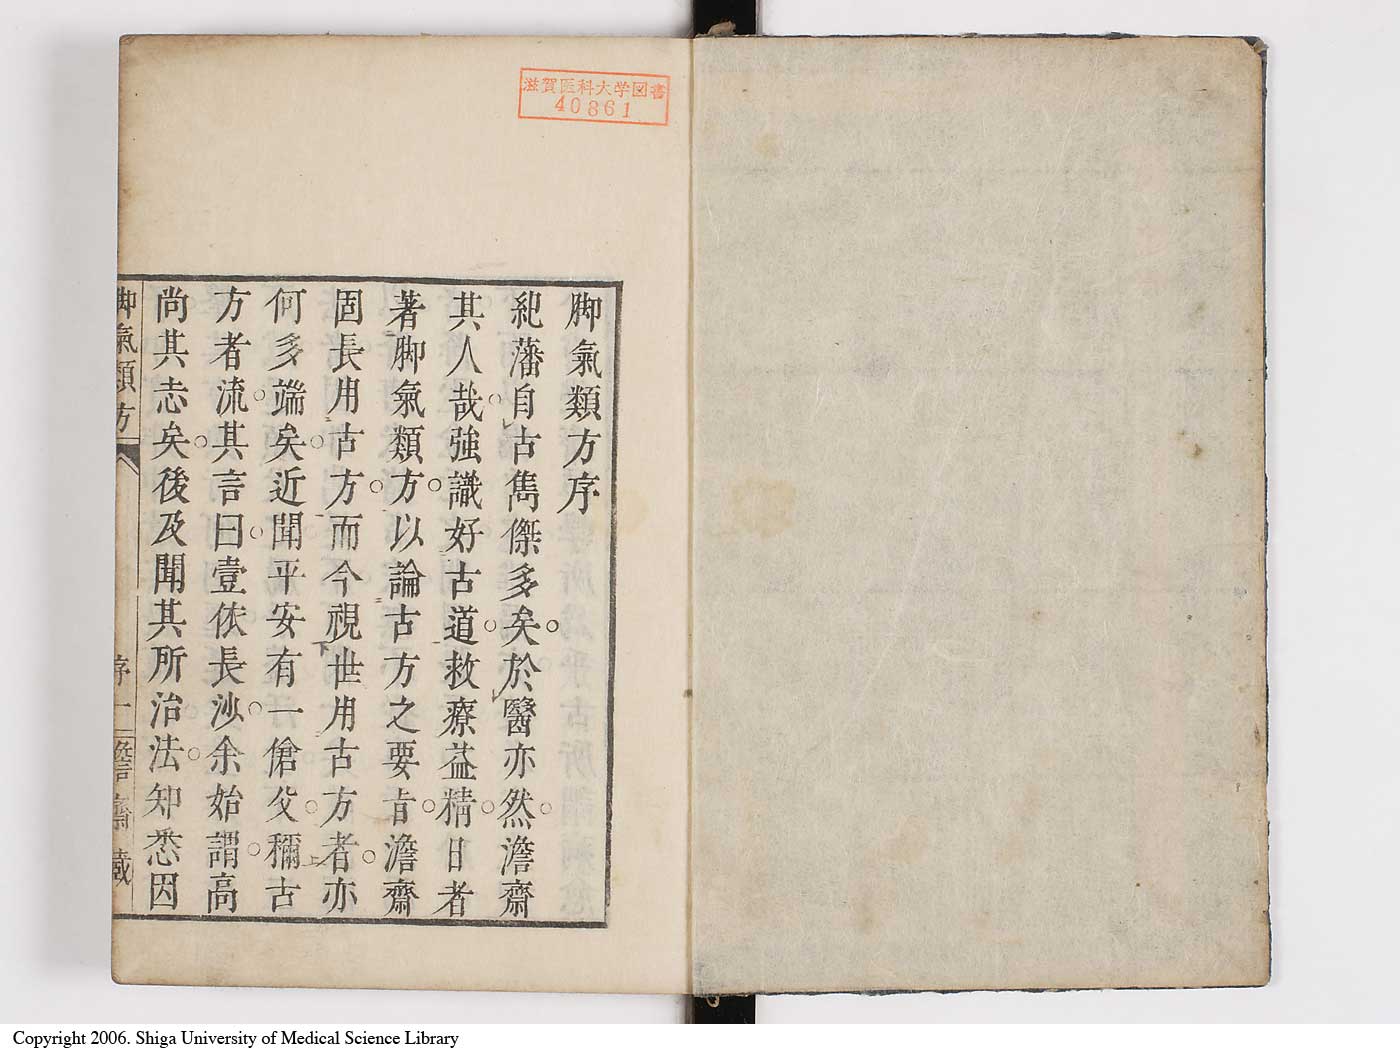 滋賀医科大学図書
40861
脚氣類方序
紀藩自古雋傑多矣。於醫亦然。澹齋
其人哉。強識好古道。救療益精。日者
著脚氣類方。以論古方之要旨。澹齋
固長用古方。而今視世用古方者。亦
何多端矣。近聞平安有一傖父。稱古
方者流。其言曰。壹依長沙。余始謂。高
尚其志矣。後及聞其所治法。知悉因
脚氣類方 序 一 澹齋藏
Copyright 2006. Shiga University of Medical Science Library